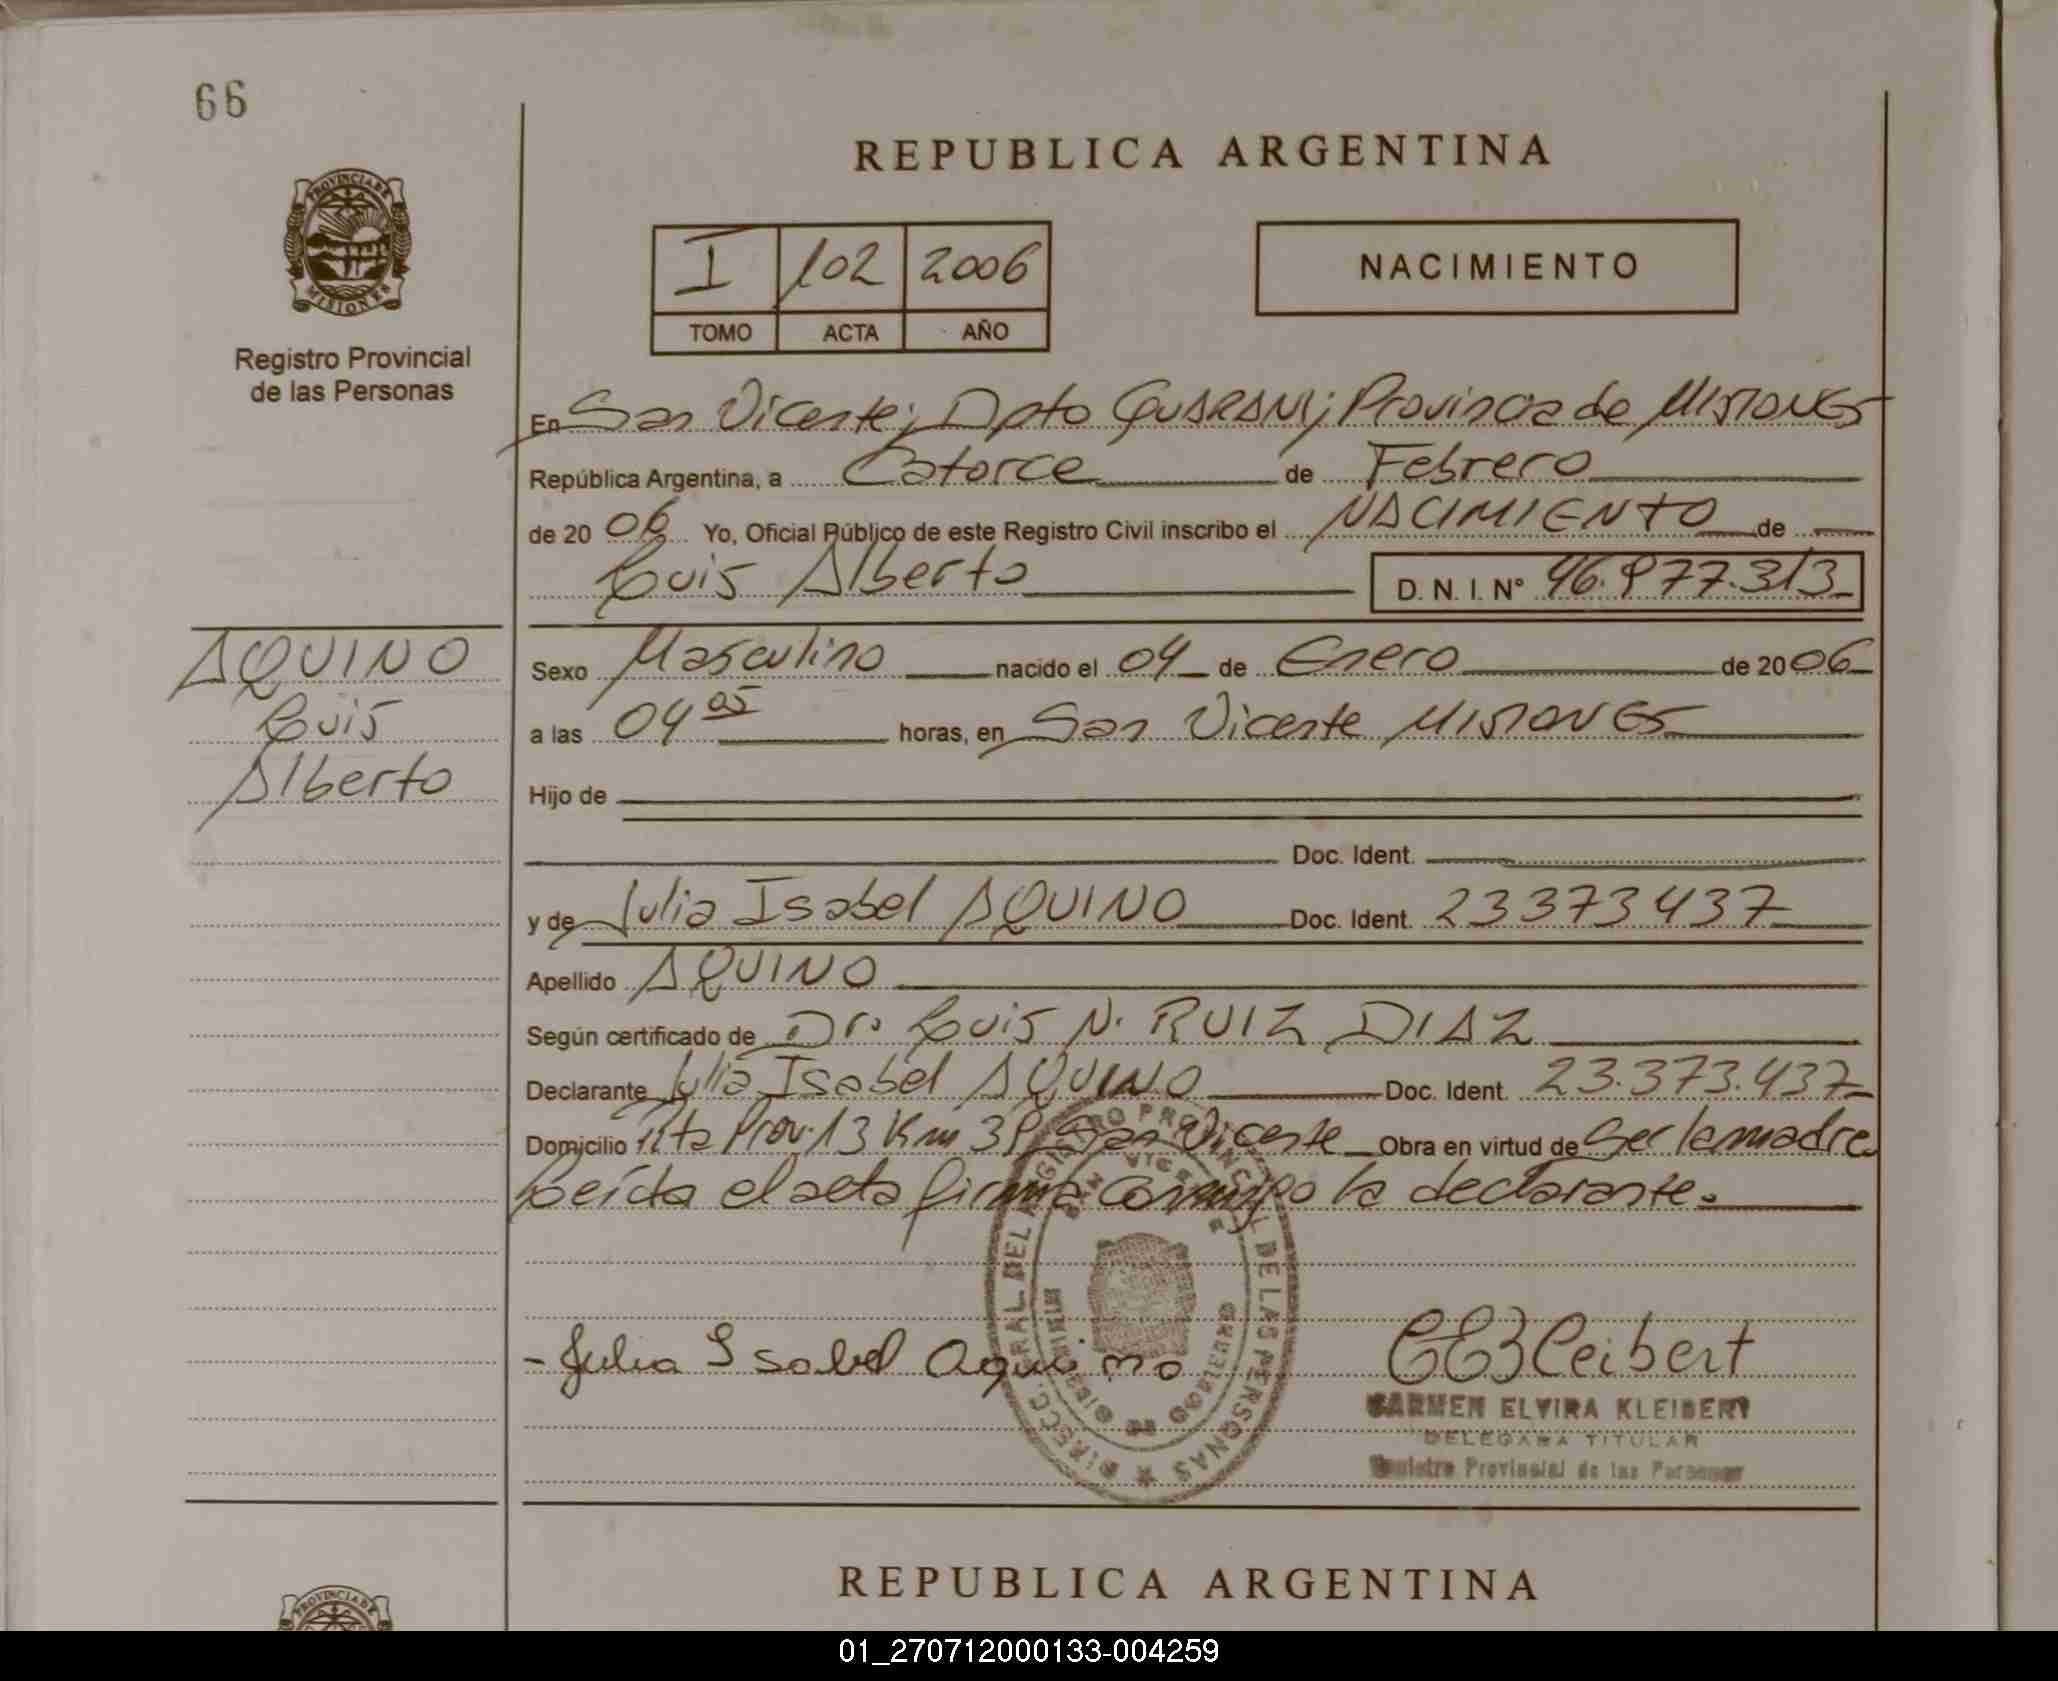 66
PROVINCIA DE
MISIONES
Registro Provincial
de las Personas
REPUBLICA ARGENTINA
I 102 2006
TOMO ACTA AÑO
NACIMIENTO
En San Vicente; Dpto GUARANI; Provincia de MISIONES
República Argentina, a Catorce de Febrero
de 20 06 Yo, Oficial Público de este Registro Civil inscribo el NACIMIENTO de
Luis Alberto D. N. I. N° 46.977.313
AQUINO
Luis
Alberto
Sexo Masculino nacido el 04 de Enero de 20 06
a las 04 05 horas, en San Vicente MISIONES
Hijo de
Doc. Ident.
y de Julia Isabel AQUINO Doc. Ident. 23373437
Apellido AQUINO
Según certificado de Dr. Luis N. RUIZ DIAZ
Declarante Julia Isabel AQUINO Doc. Ident. 23.373.437
Domicilio Rta Prov. 13 Km 39 San Vicente Obra en virtud de Ser la madre
Leída el acta firma conmigo la declarante.
DEL REGISTRO PROVINCIAL DE LAS PERSONAS
SAN VICENTE
- Julia Isabel Aquino
CEKleibert
CARMEN ELVIRA KLEIBERT
DELEGADA TITULAR
Registro Provincial de las Personas
REPUBLICA ARGENTINA
PROVINCIA DE
01_270712000133-004259